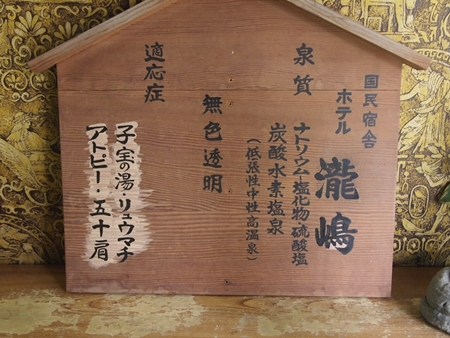 国民宿舎
ホテル
瀧嶋
泉質
ナトリウム塩化物・硫酸塩
炭酸水素塩泉
(低張性中性高温泉)
無色透明
適応症
子宝の湯・リュウマチ
アトピー 五十肩